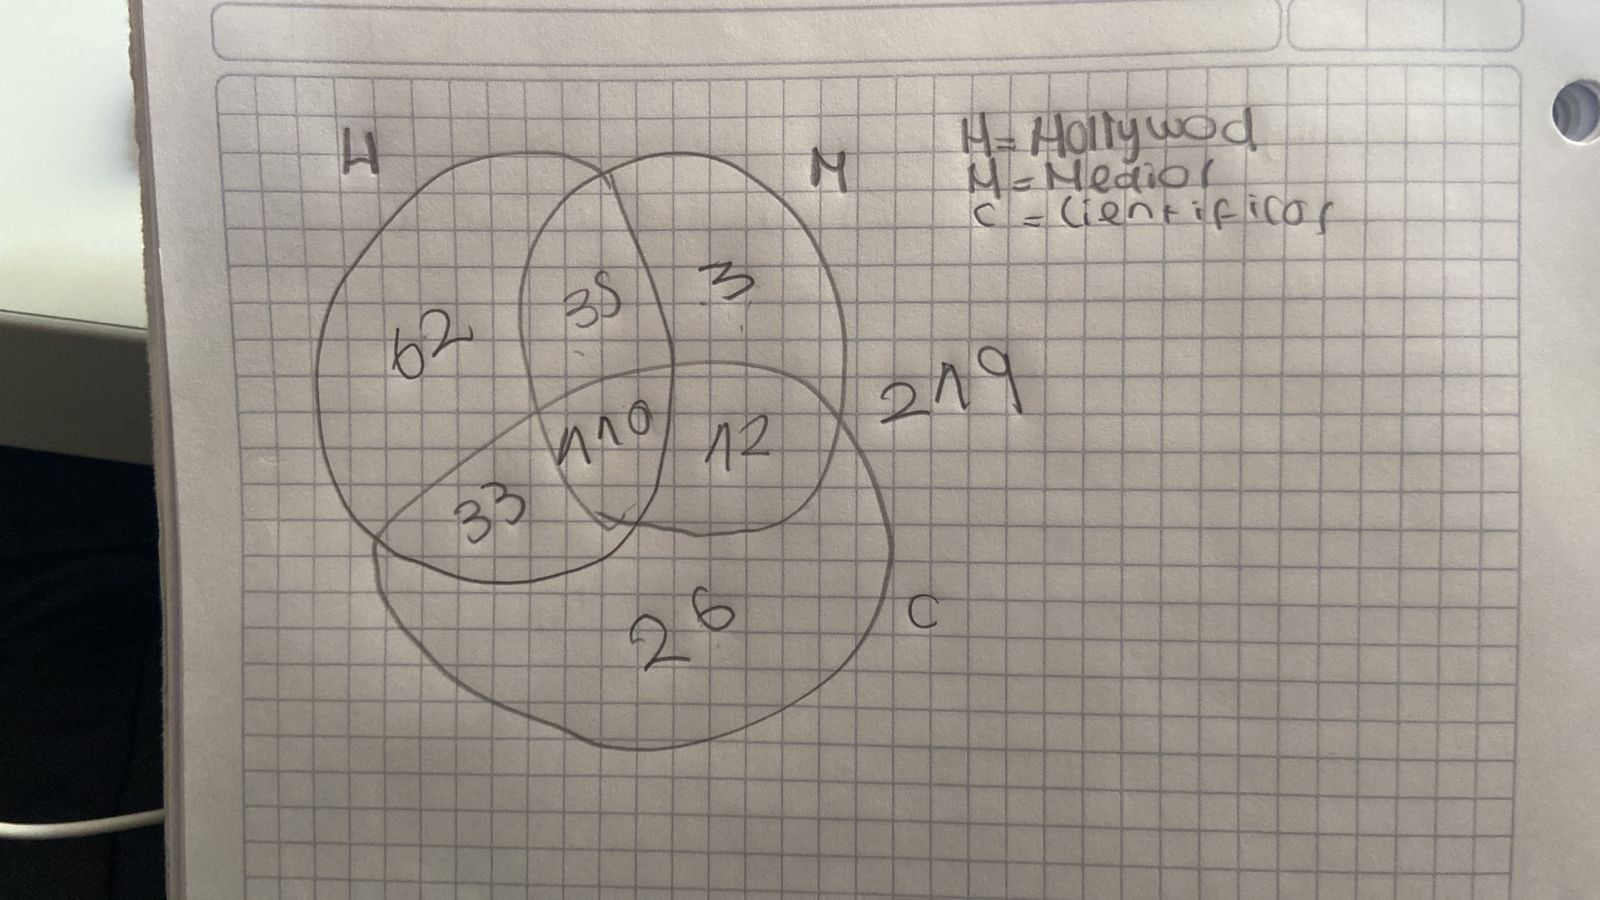 H
M
H=Hollywod
M=Medios
C=Cientificos
35
3
62
219
110
12
33
26
C